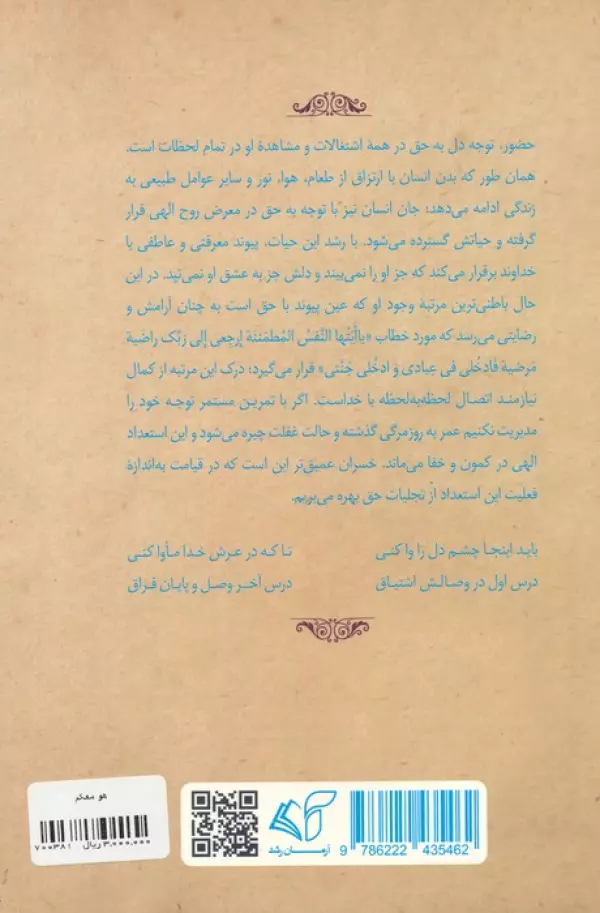 حضور، توجه دل به حق در همهٔ اشتغالات و مشاهدهٔ او در تمام لحظات است.
همان طور که بدن انسان با ارتزاق از طعام، هوا، نور و سایر عوامل طبیعی به
زندگی ادامه می‌دهد؛ جان انسان نیز با توجه به حق در معرض روح الهی قرار
گرفته و حیاتش گسترده می‌شود. با رشد این حیات، پیوند معرفتی و عاطفی با
خداوند برقرار می‌کند که جز او را نمی‌بیند و دلش جز به عشق او نمی‌تپد. در این
حال باطنی‌ترین مرتبهٔ وجود او که عین پیوند با حق است به چنان آرامش و
رضایتی می‌رسد که مورد خطاب «یاأیَّتُها النَّفسُ المُطمَئنة إرجعی إلی رَبِّک راضیة
مَرضیة فَادخُلی فی عِبادی وَ ادخُلی جَنَّتی» قرار می‌گیرد؛ درک این مرتبه از کمال
نیازمند اتصال لحظه‌به‌لحظه با خداست. اگر با تمرین مستمر توجه خود را
مدیریت نکنیم عمر به روزمرگی گذشته و حالت غفلت چیره می‌شود و این استعداد
الهی در کمون و خفا می‌ماند. خسران عمیق‌تر این است که در قیامت به‌اندازهٔ
فعلیت این استعداد از تجلیات حق بهره می‌بریم.
باید اینجا چشم دل را وا کنی تا که در عرش خدا مأوا کنی
درس اول در وصالش اشتیاق درس آخر وصل و پایان فراق
هو معکم
۷۰۰۳۸۱ ۳،۰۰۰،۰۰۰ ریال
آرمان رشد
9 786222 435462